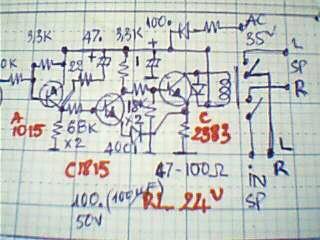 3,3K
47.
3,3K
100.
AC
35V
0K
22
L
SP
R
A
1015
68K
x2
18K
x2
C
2383
400
C1815
47-100Ω
L
R
100. (100µF)
50V
RL 24V
iN
SP